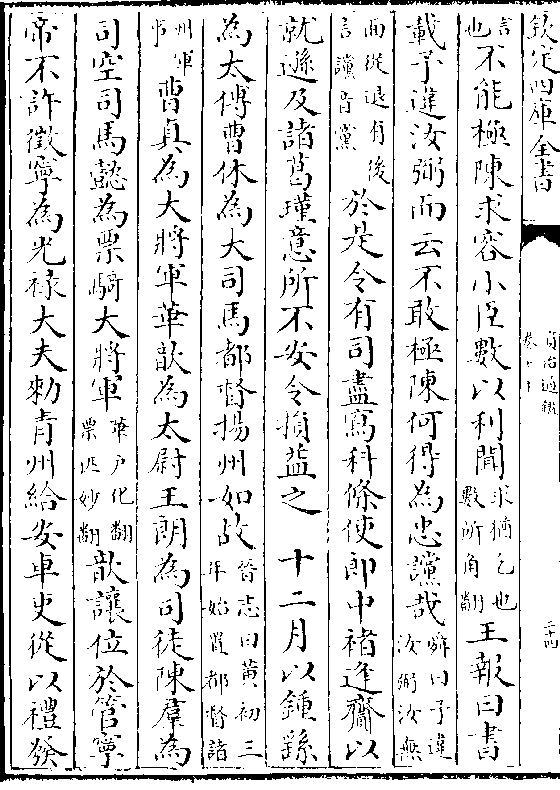 欽定四庫全書
資治通鑑
卷七十
言也不能極陳求容小臣數以利聞求猶乞也數所角翻王報曰書
載予違汝弼而云不敢極陳何得為忠讜哉舜曰予違汝弼汝無
面從退有後言讜音黨於是令有司盡寫科條使郎中褚逢齎以
就遜及諸葛瑾意所不安令損益之 十二月以鍾繇
為太傅曹休為大司馬都督揚州如故晉志曰黃初三年始置都督諸
州軍事曹真為大將軍華歆為太尉王朗為司徒陳羣為
司空司馬懿為票騎大將軍華戶化翻票匹妙翻歆讓位於管寧
帝不許徵寧為光祿大夫勅青州給安車吏從以禮發